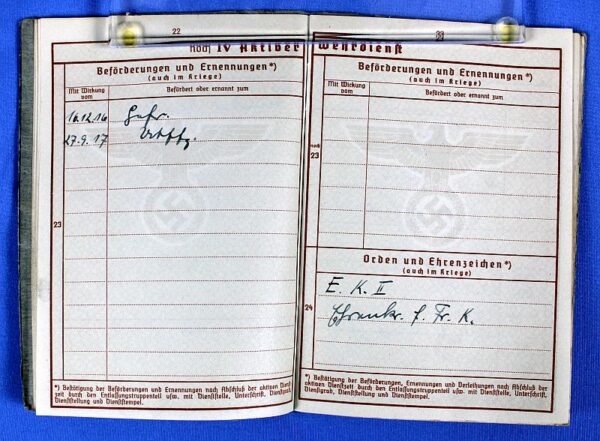 22
noch IV Aktiver Wehrdienst
Beförderungen und Ernennungen*)
(auch im Kriege)
Mit Wirkung vom
Befördert oder ernannt zum
16.12.16 Gefr.
27.9.17 Uffz.
23
*) Bestätigung der Beförderungen und Ernennungen nach Abschluß der aktiven Dienst-
zeit durch den Entlassungstruppenteil usw. mit Dienststelle, Unterschrift, Dienstgrad,
Dienststellung und Dienststempel.
Beförderungen und Ernennungen*)
(auch im Kriege)
Mit Wirkung vom
Befördert oder ernannt zum
noch
23
Orden und Ehrenzeichen*)
(auch im Kriege)
E. K. II
24
Ehrenkr. f. Fr. K.
*) Bestätigung der Beförderungen, Ernennungen und Verleihungen nach Abschluß der
aktiven Dienstzeit durch den Entlassungstruppenteil usw. mit Dienststelle, Unterschrift,
Dienstgrad, Dienststellung und Dienststempel.